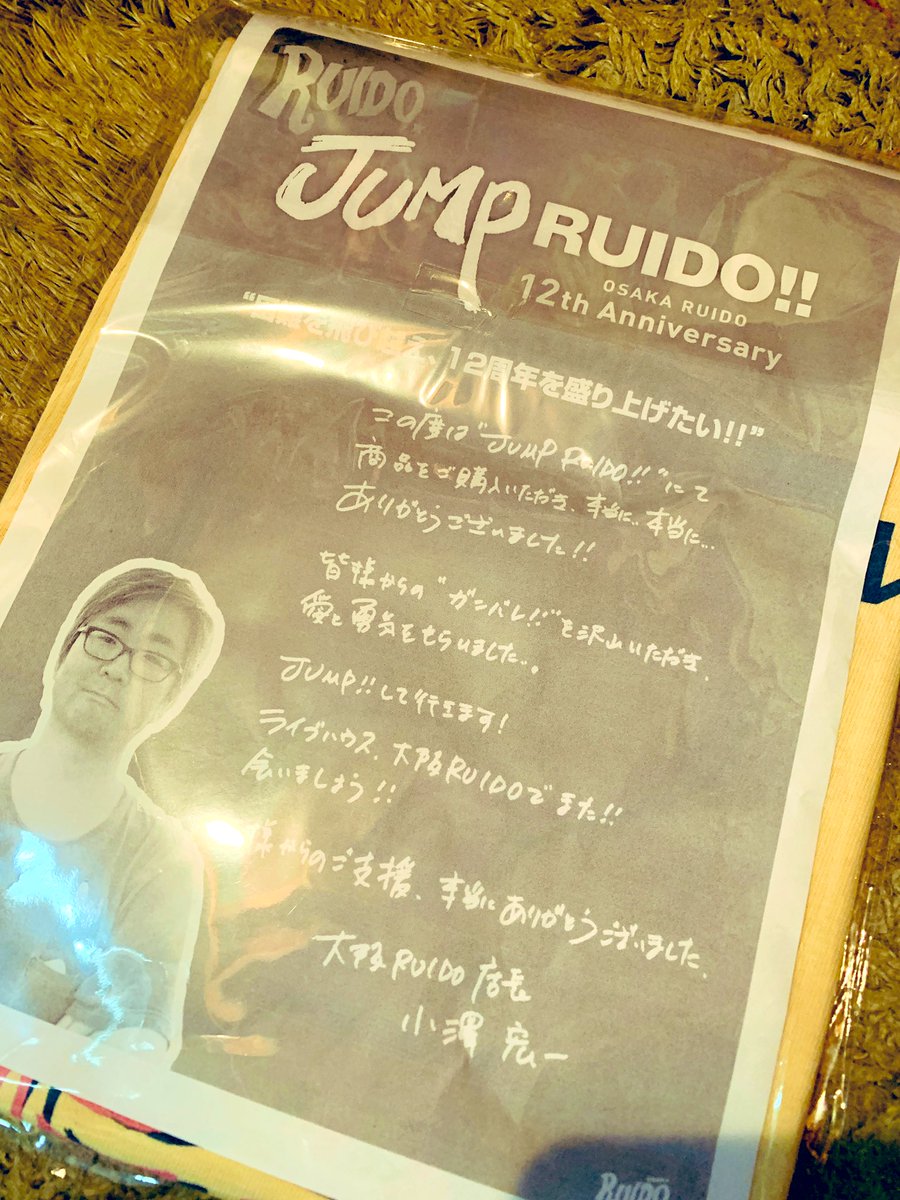 RUIDO
JUMP RUIDO!!
OSAKA RUIDO
12th Anniversary
12周年を盛り上げたい!!”
この度は“JUMP RUIDO!!”にて
商品をご購入いただき、本当に…本当に…
ありがとうございました!!
皆様からの“ガンバレ!!”を沢山いただき、
愛と勇気をもらいました…。
JUMP!!して行きます!
ライブハウス、大阪RUIDOでまた!!
会いましょう!!
様からのご支援、本当にありがとうございました。
大阪RUIDO 店長
小澤 宏一
RUIDO